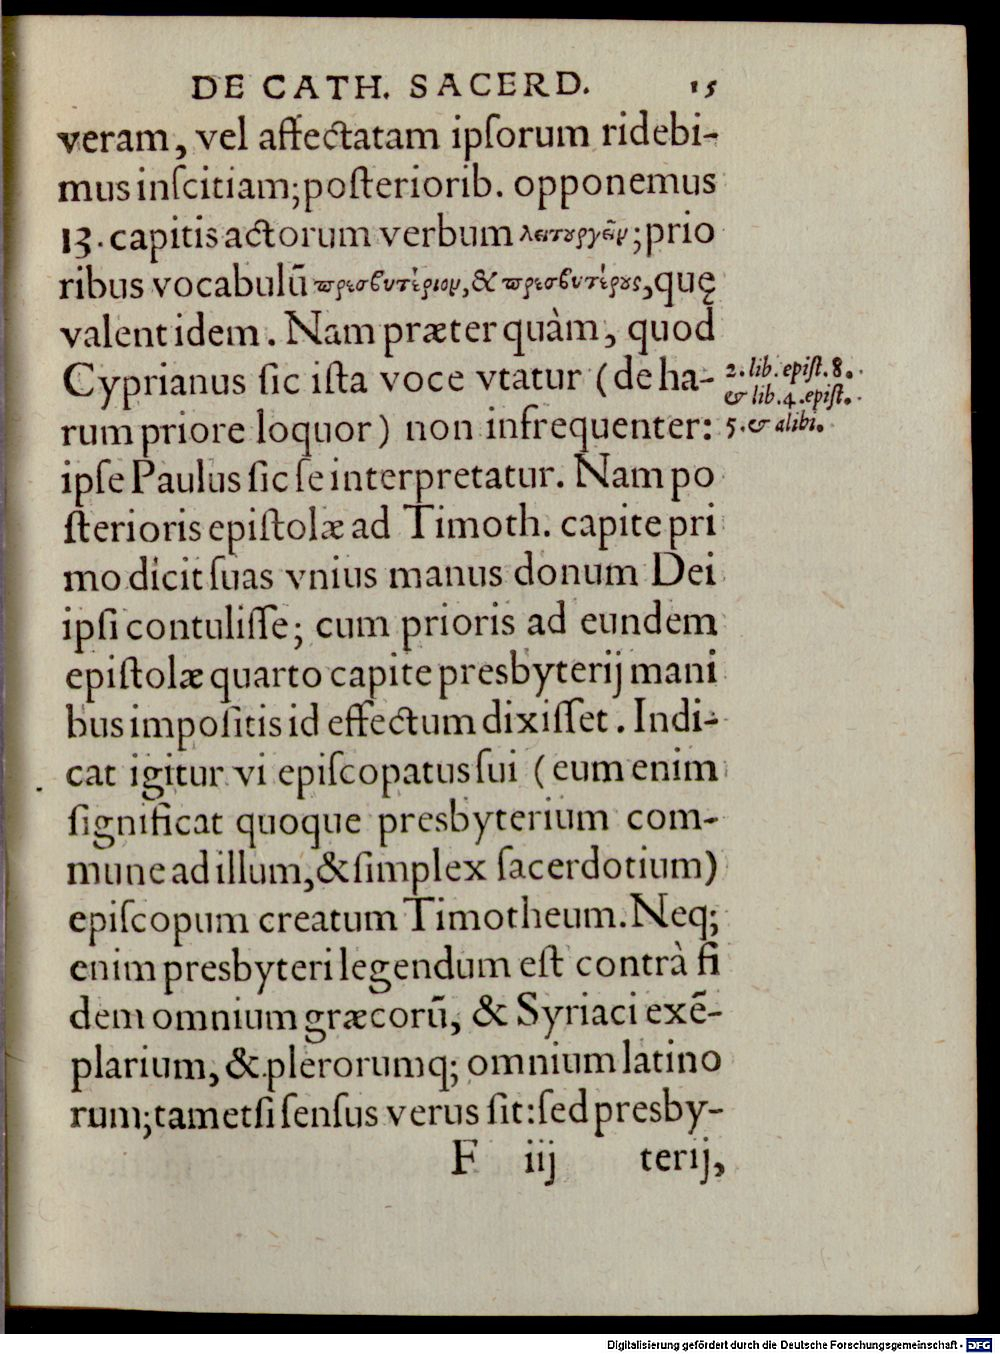 DE CATH. SACERD. 15
veram, vel affectatam ipſorum ridebi-
mus inſcitiam; poſteriorib. opponemus
13. capitis actorum verbum λειτουργεῖν; prio
ribus vocabulũ πρεσβυτέριον, & πρεσβυτέρους, quę
valent idem. Nam præter quàm, quod
Cyprianus ſic iſta voce vtatur (de ha-
rum priore loquor) non infrequenter:
2. lib. epiſt. 8.
& lib. 4. epiſt.
5. & alibi.
ipſe Paulus ſic ſe interpretatur. Nam po
ſterioris epiſtolæ ad Timoth. capite pri
mo dicit ſuas vnius manus donum Dei
ipſi contuliſſe; cum prioris ad eundem
epiſtolæ quarto capite presbyterij mani
bus impoſitis id effectum dixiſſet. Indi-
cat igitur vi epiſcopatus ſui (eum enim
ſignificat quoque presbyterium com-
mune ad illum, & ſimplex ſacerdotium)
epiſcopum creatum Timotheum. Neq;
enim presbyteri legendum eſt contrà fi
dem omnium græcorũ, & Syriaci exẽ-
plarium, & plerorumq; omnium latino
rum; tametſi ſenſus verus ſit: ſed presby-
F iij terij,
Digitalisierung gefördert durch die Deutsche Forschungsgemeinschaft - DFG